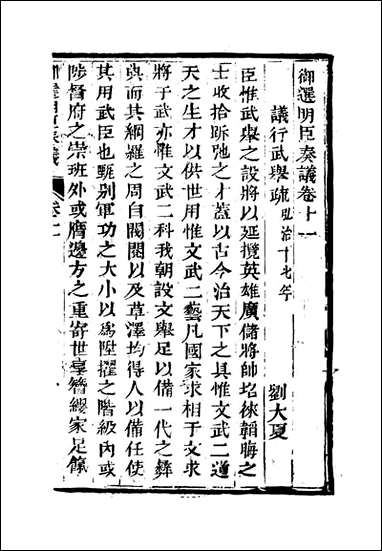 御選明臣奏議卷十一
議行武舉疏弘治十七年
劉大夏
臣惟武舉之設將以延攬英雄廣儲將帥招徠韜晦之
士收拾跅弛之才蓋以古今治天下之具惟文武二道
天之生才以供世用惟文武二藝凡國家求相于文求
將于武亦惟文武二科我朝設文舉足以備一代之彝
典而其網羅之周自閥閱以及草澤均得人以備任使
其用武臣也甄别軍功之大小以為陞擢之階級內或
陟督府之崇班外或膺邊方之重寄世享簪纓家足餼